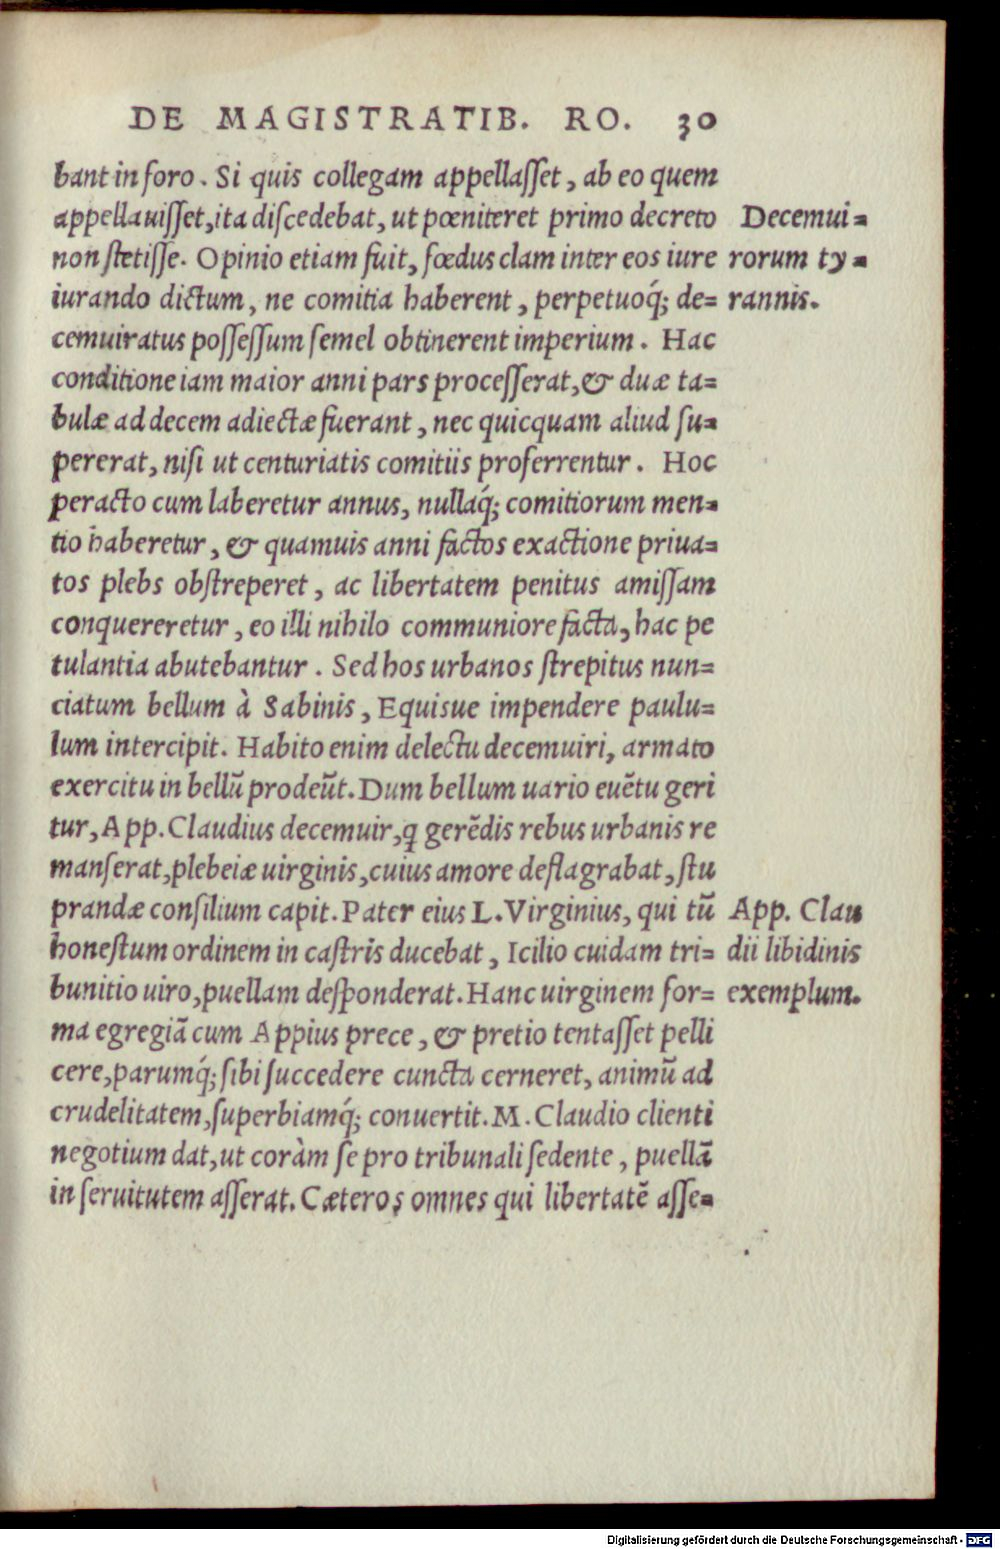 DE MAGISTRATIB. RO. 30
bant in foro. Si quis collegam appellaſſet, ab eo quem
appellauiſſet, ita diſcedebat, ut pœniteret primo decreto
non ſtetiſſe. Opinio etiam fuit, fœdus clam inter eos iure
iurando dictum, ne comitia haberent, perpetuoq́; de=
cemuiratus poſſeſſum ſemel obtinerent imperium. Hac
conditione iam maior anni pars proceſſerat, & duæ ta=
bulæ ad decem adiectæ fuerant, nec quicquam aliud ſu=
pererat, niſi ut centuriatis comitiis proferrentur. Hoc
peracto cum laberetur annus, nullaq́; comitiorum men=
tio haberetur, & quamuis anni factos exactione priua=
tos plebs obſtreperet, ac libertatem penitus amiſſam
conquereretur, eo illi nihilo communiore facta, hac pe
tulantia abutebantur. Sed hos urbanos ſtrepitus nun=
ciatum bellum à Sabinis, Equisue impendere paulu=
lum intercipit. Habito enim delectu decemuiri, armato
exercitu in bellũ prodeũt. Dum bellum uario euẽtu geri
tur, App. Claudius decemuir, q gerẽdis rebus urbanis re
manſerat, plebeiæ uirginis, cuius amore deflagrabat, ſtu
prandæ conſilium capit. Pater eius L. Virginius, qui tũ
honeſtum ordinem in caſtris ducebat, Icilio cuidam tri=
bunitio uiro, puellam deſponderat. Hanc uirginem for=
ma egregiã cum Appius prece, & pretio tentaſſet pelli
cere, parumq́; ſibi ſuccedere cuncta cerneret, animũ ad
crudelitatem, ſuperbiamq́; conuertit. M. Claudio clienti
negotium dat, ut coràm ſe pro tribunali ſedente, puellã
in ſeruitutem aſſerat. Cæteros omnes qui libertatẽ aſſe=
Decemui=
rorum ty=
rannis.
App. Clau
dii libidinis
exemplum.
Digitalisierung gefördert durch die Deutsche Forschungsgemeinschaft - DFG